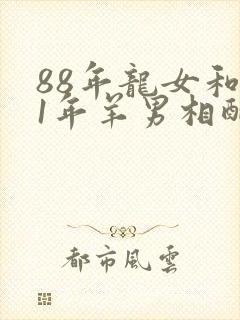 88年龍女和
1年羊男相配
都市風雲